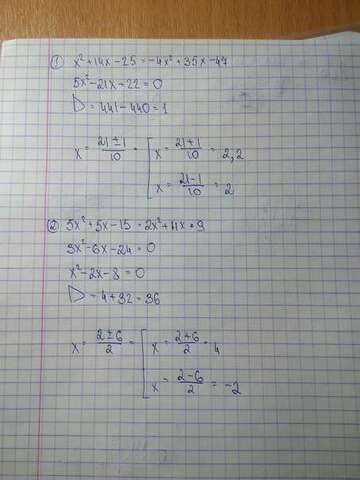 ① x² + 14x - 25 = -4x² + 35x - 47
5x² - 21x + 22 = 0
D = 441 - 440 = 1
x = (21 ± 1)/10 = [ x = (21+1)/10 = 2,2
x = (21-1)/10 = 2
② 5x² + 5x - 15 = 2x² + 11x + 9
3x² - 6x - 24 = 0
x² - 2x - 8 = 0
D = 4 + 32 = 36
x = (2 ± 6)/2 = [ x = (2+6)/2 = 4
x = (2-6)/2 = -2